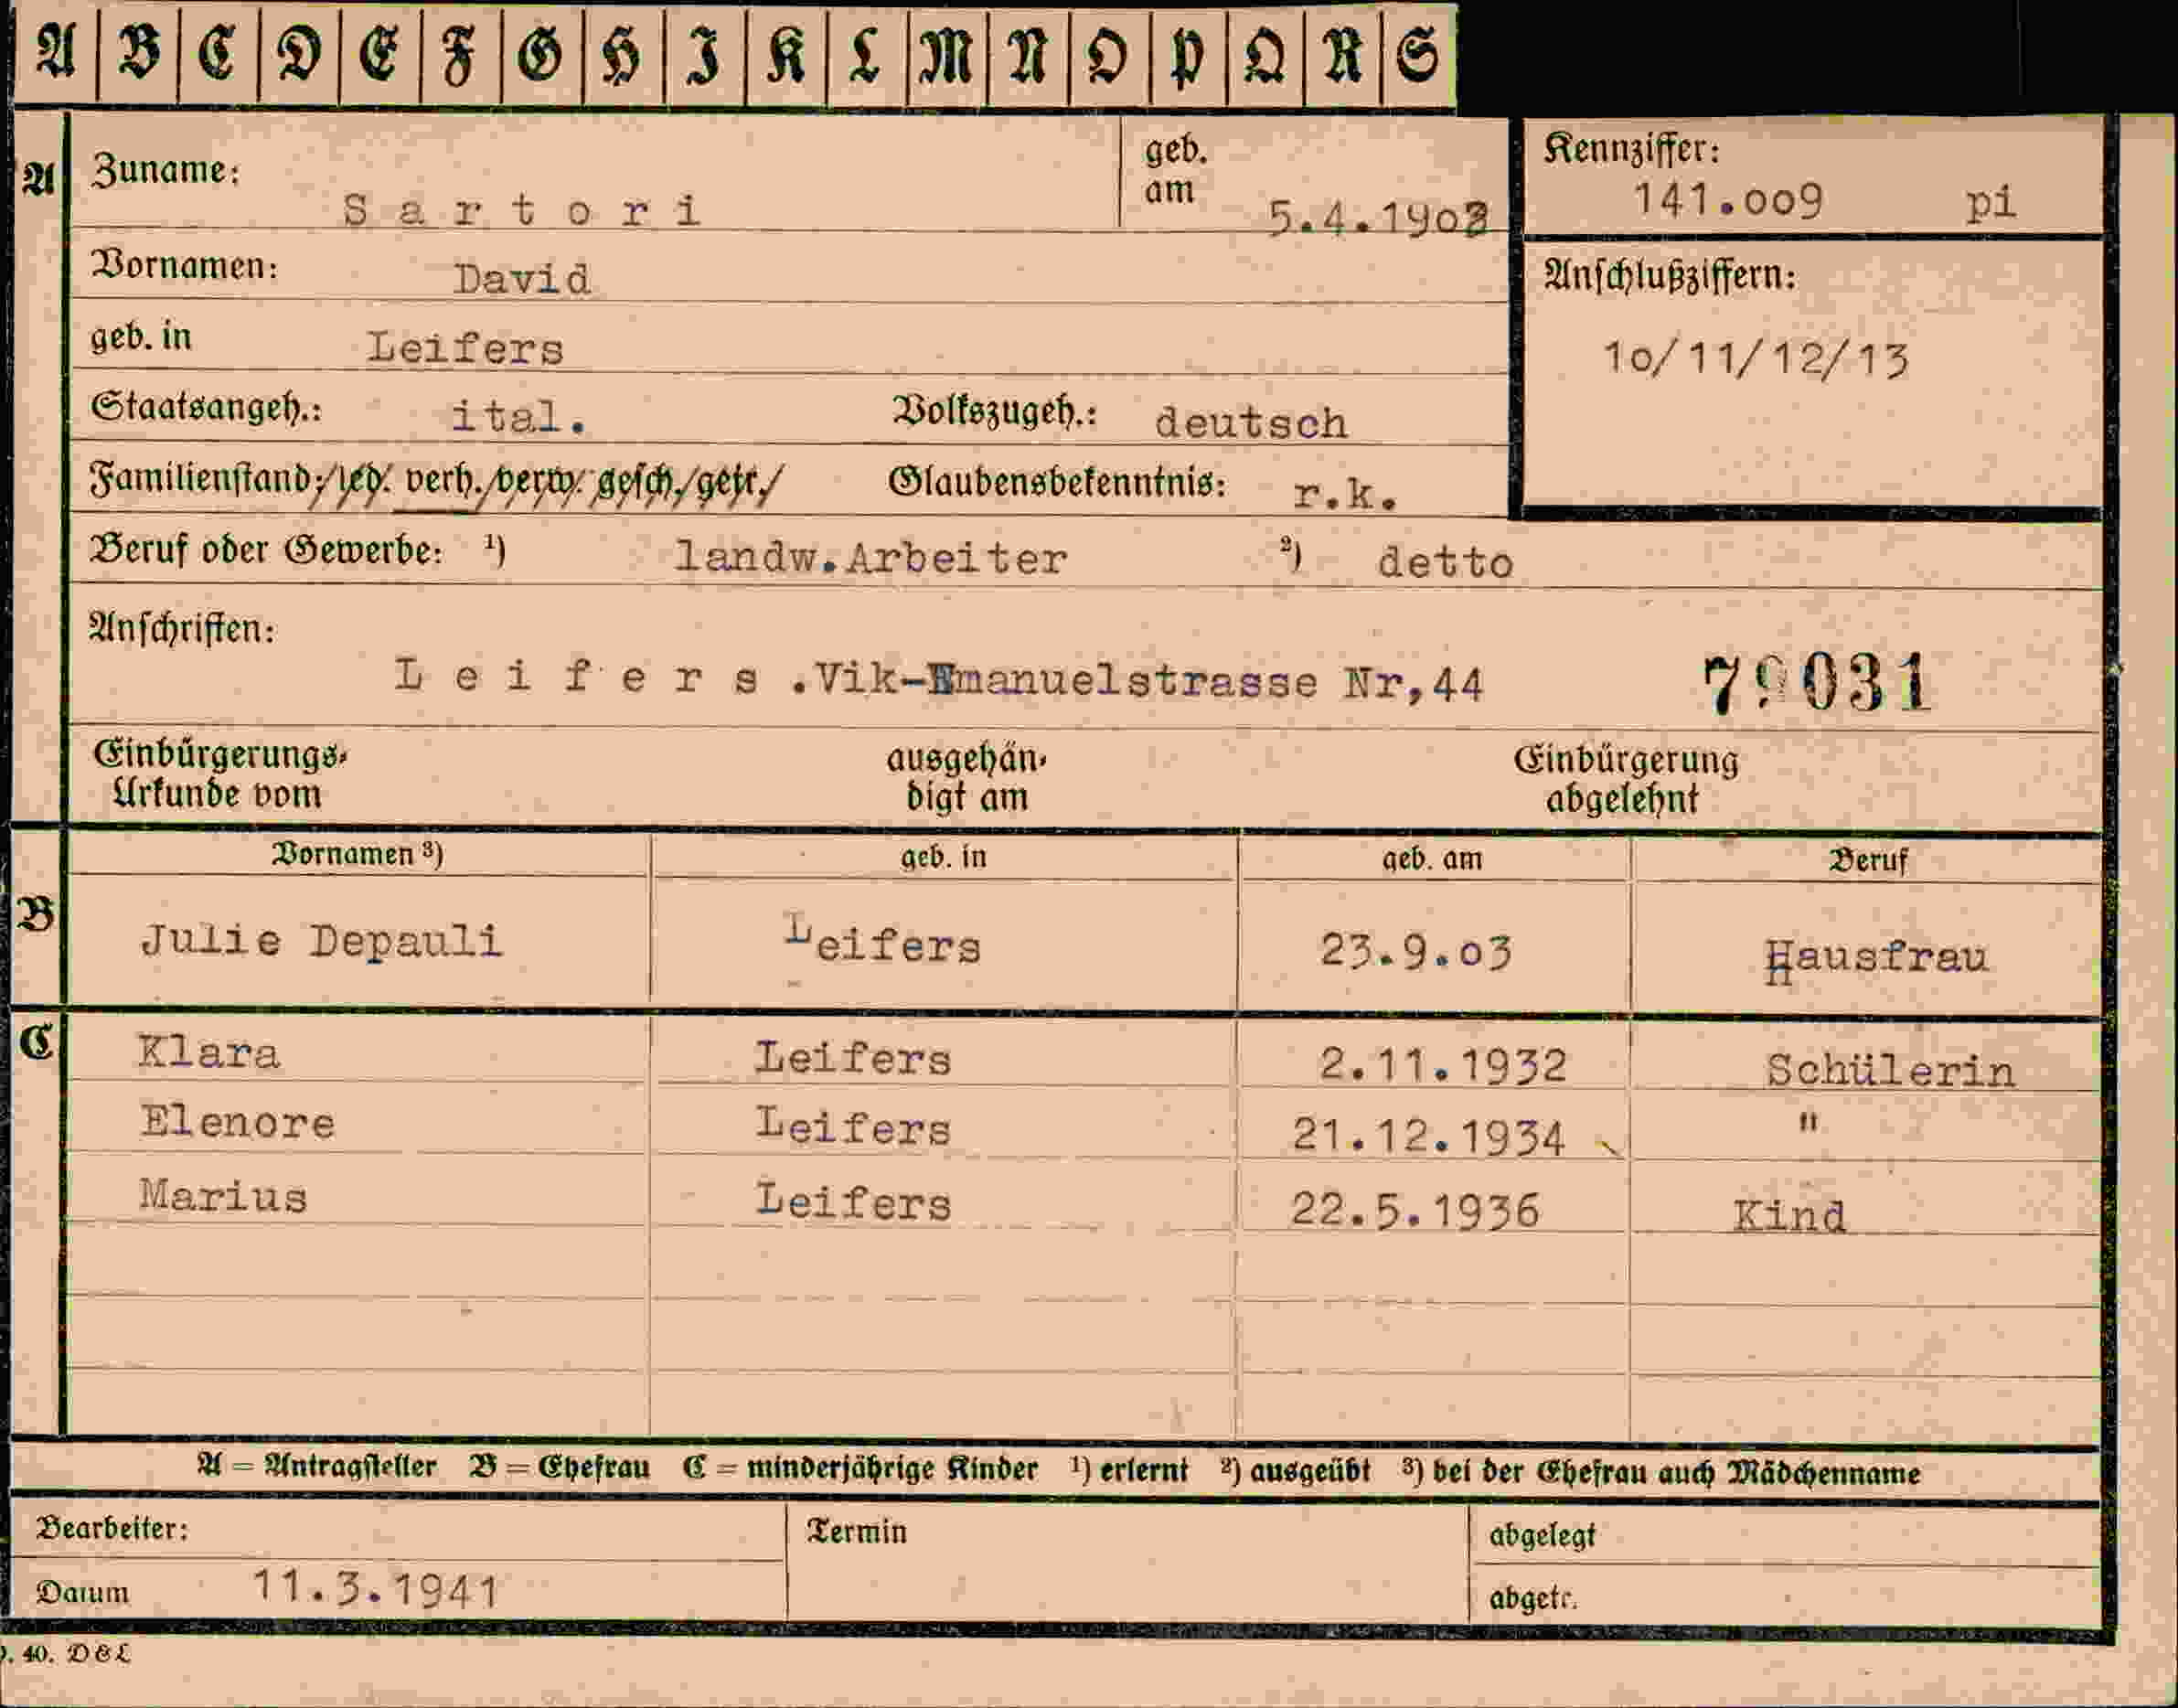 A B C D E F G H I K L M N O P Q R S
A Zuname: Sartori geb. am 5.4.1903
Kennziffer: 141.oo9 pi
Vornamen: David
Anschlußziffern: 1o/11/12/13
geb. in Leifers
Staatsangeh.: ital. Volkszugeh.: deutsch
Familienstand: led. verh. verw. gesch. getr. Glaubensbekenntnis: r.k.
Beruf oder Gewerbe: ¹) landw.Arbeiter ²) detto
Anschriften: Leifers.Vik-Emanuelstrasse Nr,44 79031
Einbürgerungs-Urkunde vom ausgehän-digt am Einbürgerung abgelehnt
Vornamen ³) geb. in geb. am Beruf
B Julie Depauli Leifers 23.9.o3 Hausfrau
C Klara Leifers 2.11.1932 Schülerin
Elenore Leifers 21.12.1934 "
Marius Leifers 22.5.1936 Kind
A = Antragsteller B = Ehefrau C = minderjährige Kinder ¹) erlernt ²) ausgeübt ³) bei der Ehefrau auch Mädchenname
Bearbeiter: Termin abgelegt
Datum 11.3.1941 abgetr.
40. D&L